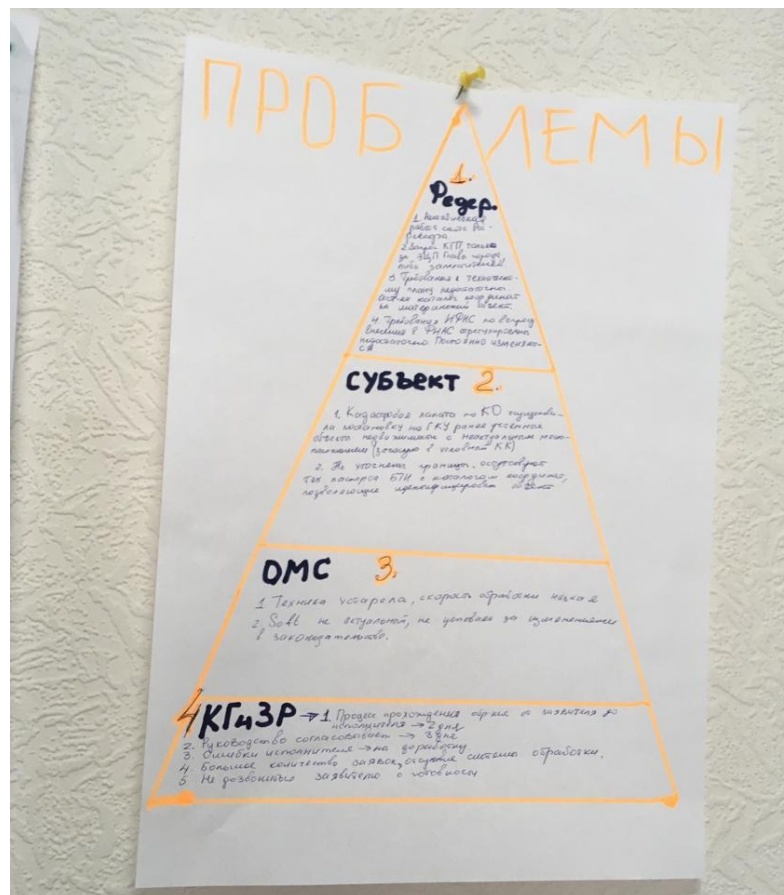 ПРОБЛЕМЫ
1.
Федер.
1.
работа сайта Рос-
реестра
2. Запрос КПТ только
за ЭЦП Глава города
либо заместителей
3. Требования к техническо-
му плану недостаточны
каталог координат
материнский объект.
4. Требования ИФНС по
внесения в ФИАС
недостаточно Постоянно изменяют-
ся
СУБЪЕКТ 2.
1. Кадастровая палата по КО осуществи-
ла постановку на ГКУ ранее учтенные
объекты недвижимости с неактуальным место-
положением (зачастую в условный КК)
2. Не уточнены границы, отсутствуют
тех паспорта БТИ с каталогом координат,
позволяющие идентифицировать объект
ОМС 3.
1 Техника устарела, скорость обработки низкая
2. Soft не актуальный, не успевает за изменениями
в законодательстве.
4 КГиЗР → 1. Процесс прохождения обр-ия от заявителя до
исполнителя → 2 дня
2. Руководство согласовывает → 3 дня
3. Ошибки исполнителя → на доработку
4. Большое количество заявок, отсутствие системы обработки.
5 Не дозвониться заявителю о готовности